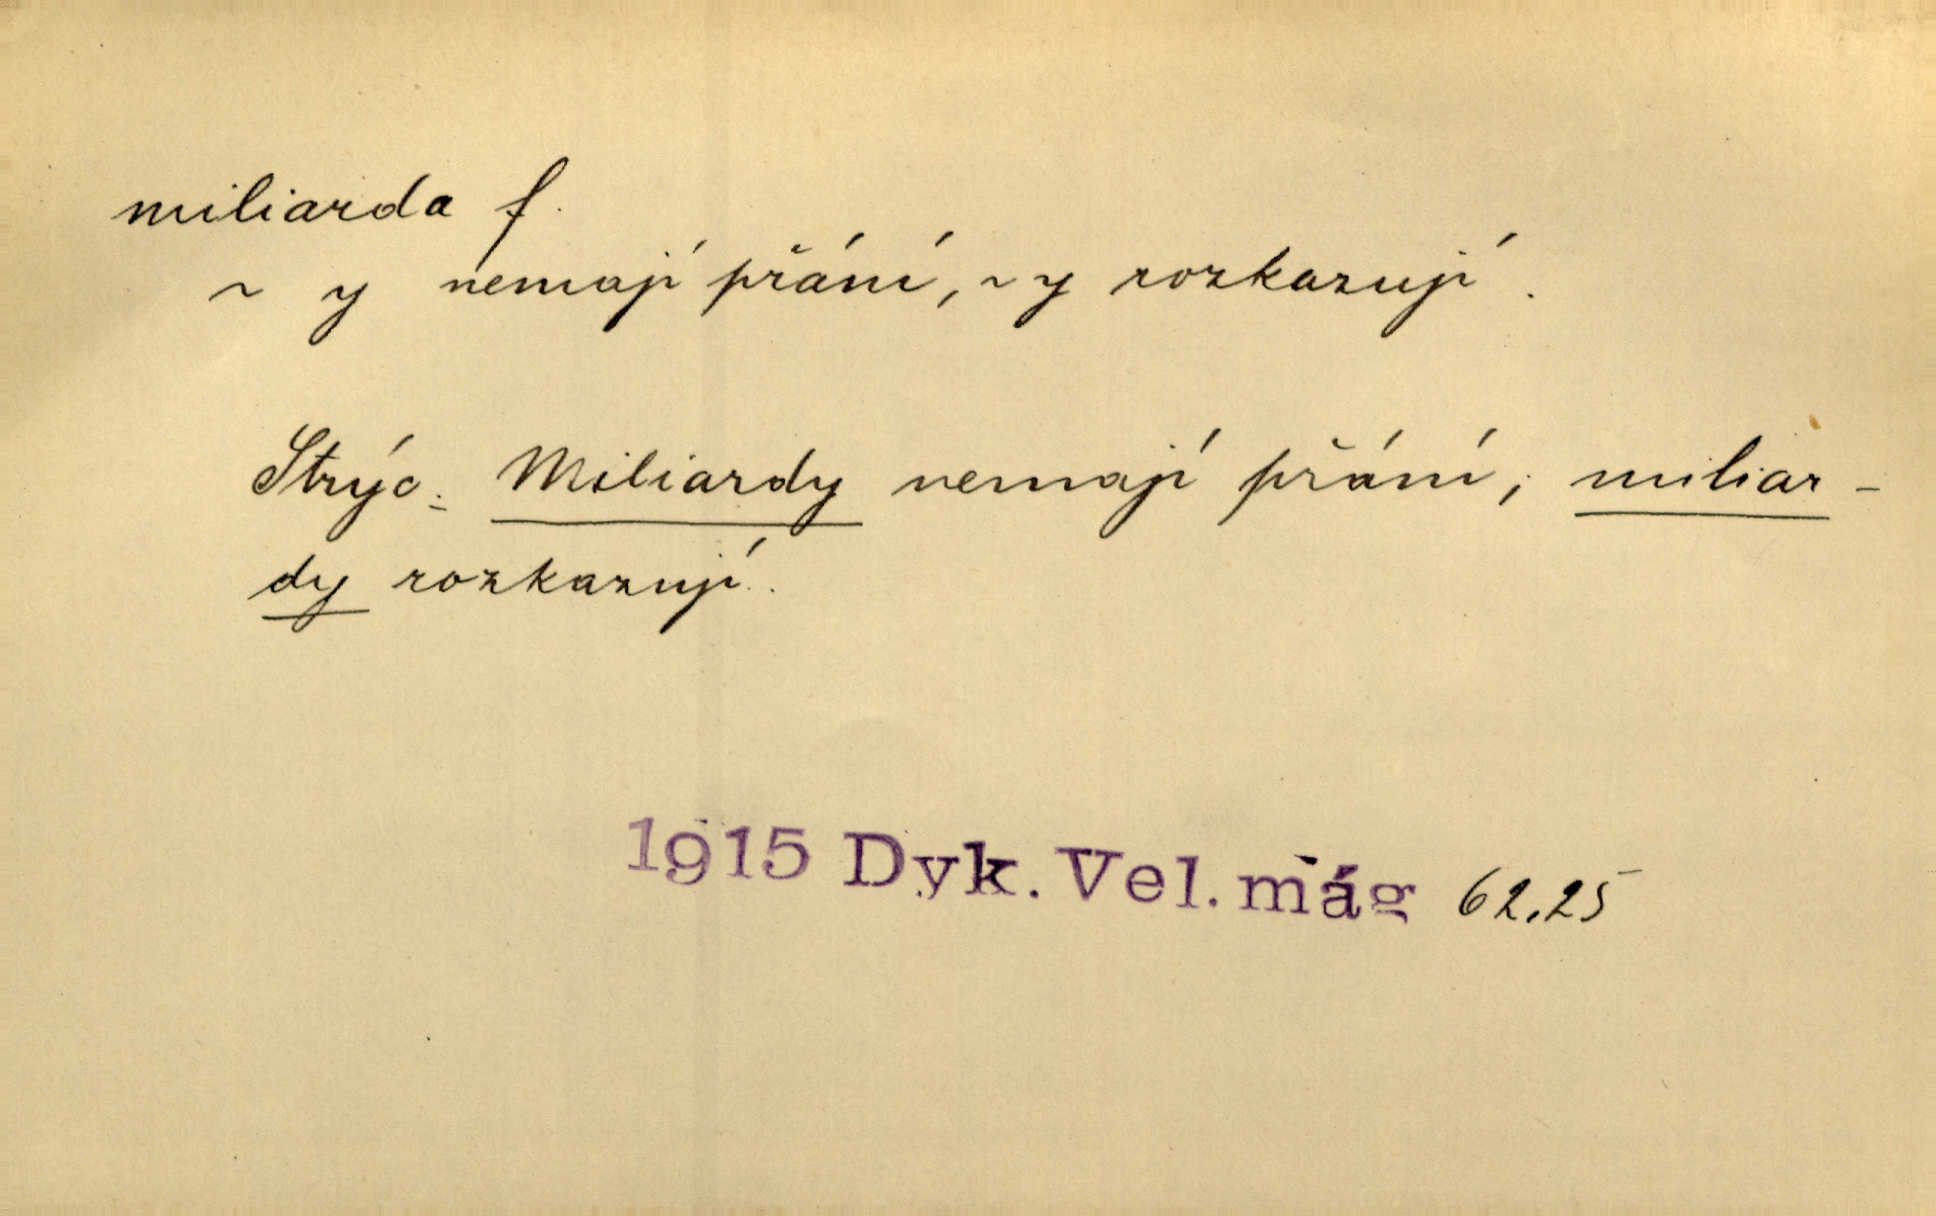 miliarda f.
~ y nemají přání, ~ y rozkazují.
Strýc: Miliardy nemají přání; miliar-
dy rozkazují.
1915 Dyk. Vel. mág 62.25